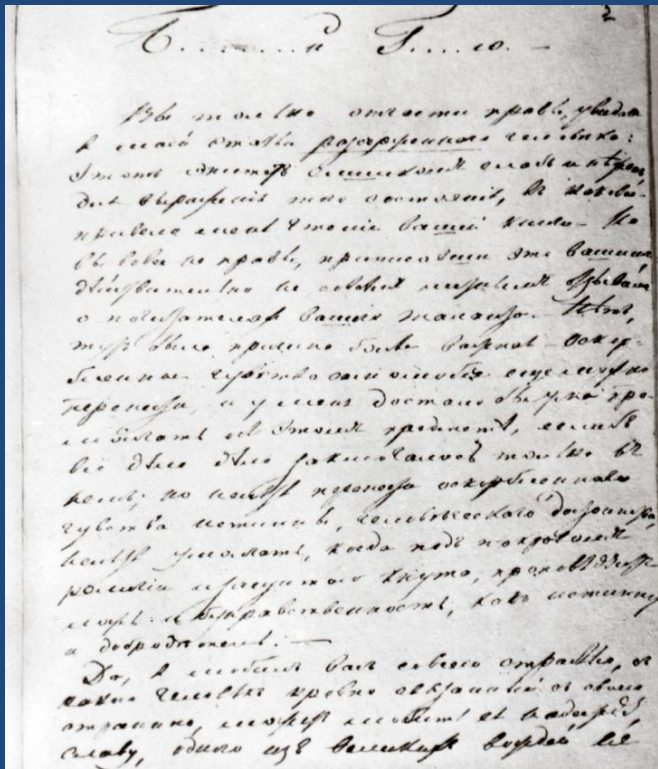 2
Б....... Г.....ю. —
Вы только отчасти правы, увидавъ
в моей статьѣ разсерженнаго человѣка:
этотъ эпитетъ слишкомъ слабъ и нѣженъ
для выраженія того состоянія, въ какое
привело меня чтеніе вашей книги. Но
вы вовсе не правы, приписавши это вашимъ
дѣйствительно не совсѣмъ лестнымъ отзывамъ
о почитателяхъ вашего таланта. Нѣтъ,
тутъ была причина болѣе важная. Оскор-
бленное чувство самолюбія еще можно
перенести, и у меня достало бы ума про-
молчать объ этомъ предметѣ, еслибъ
всё дѣло заключалось только въ
немъ; но нельзя перенести оскорбленнаго
чувства истины, человѣческаго достоинства,
нельзя умолчать, когда подъ покровомъ
религіи и защитою кнута, проповѣдуютъ
ложь и безнравственность, какъ истину
и добродѣтель. —
Да, я любилъ васъ со всею страстью, съ
какою человѣкъ кровно связанный съ своею
страною, можетъ любить её надежду,
славу, одного изъ великихъ вождей её